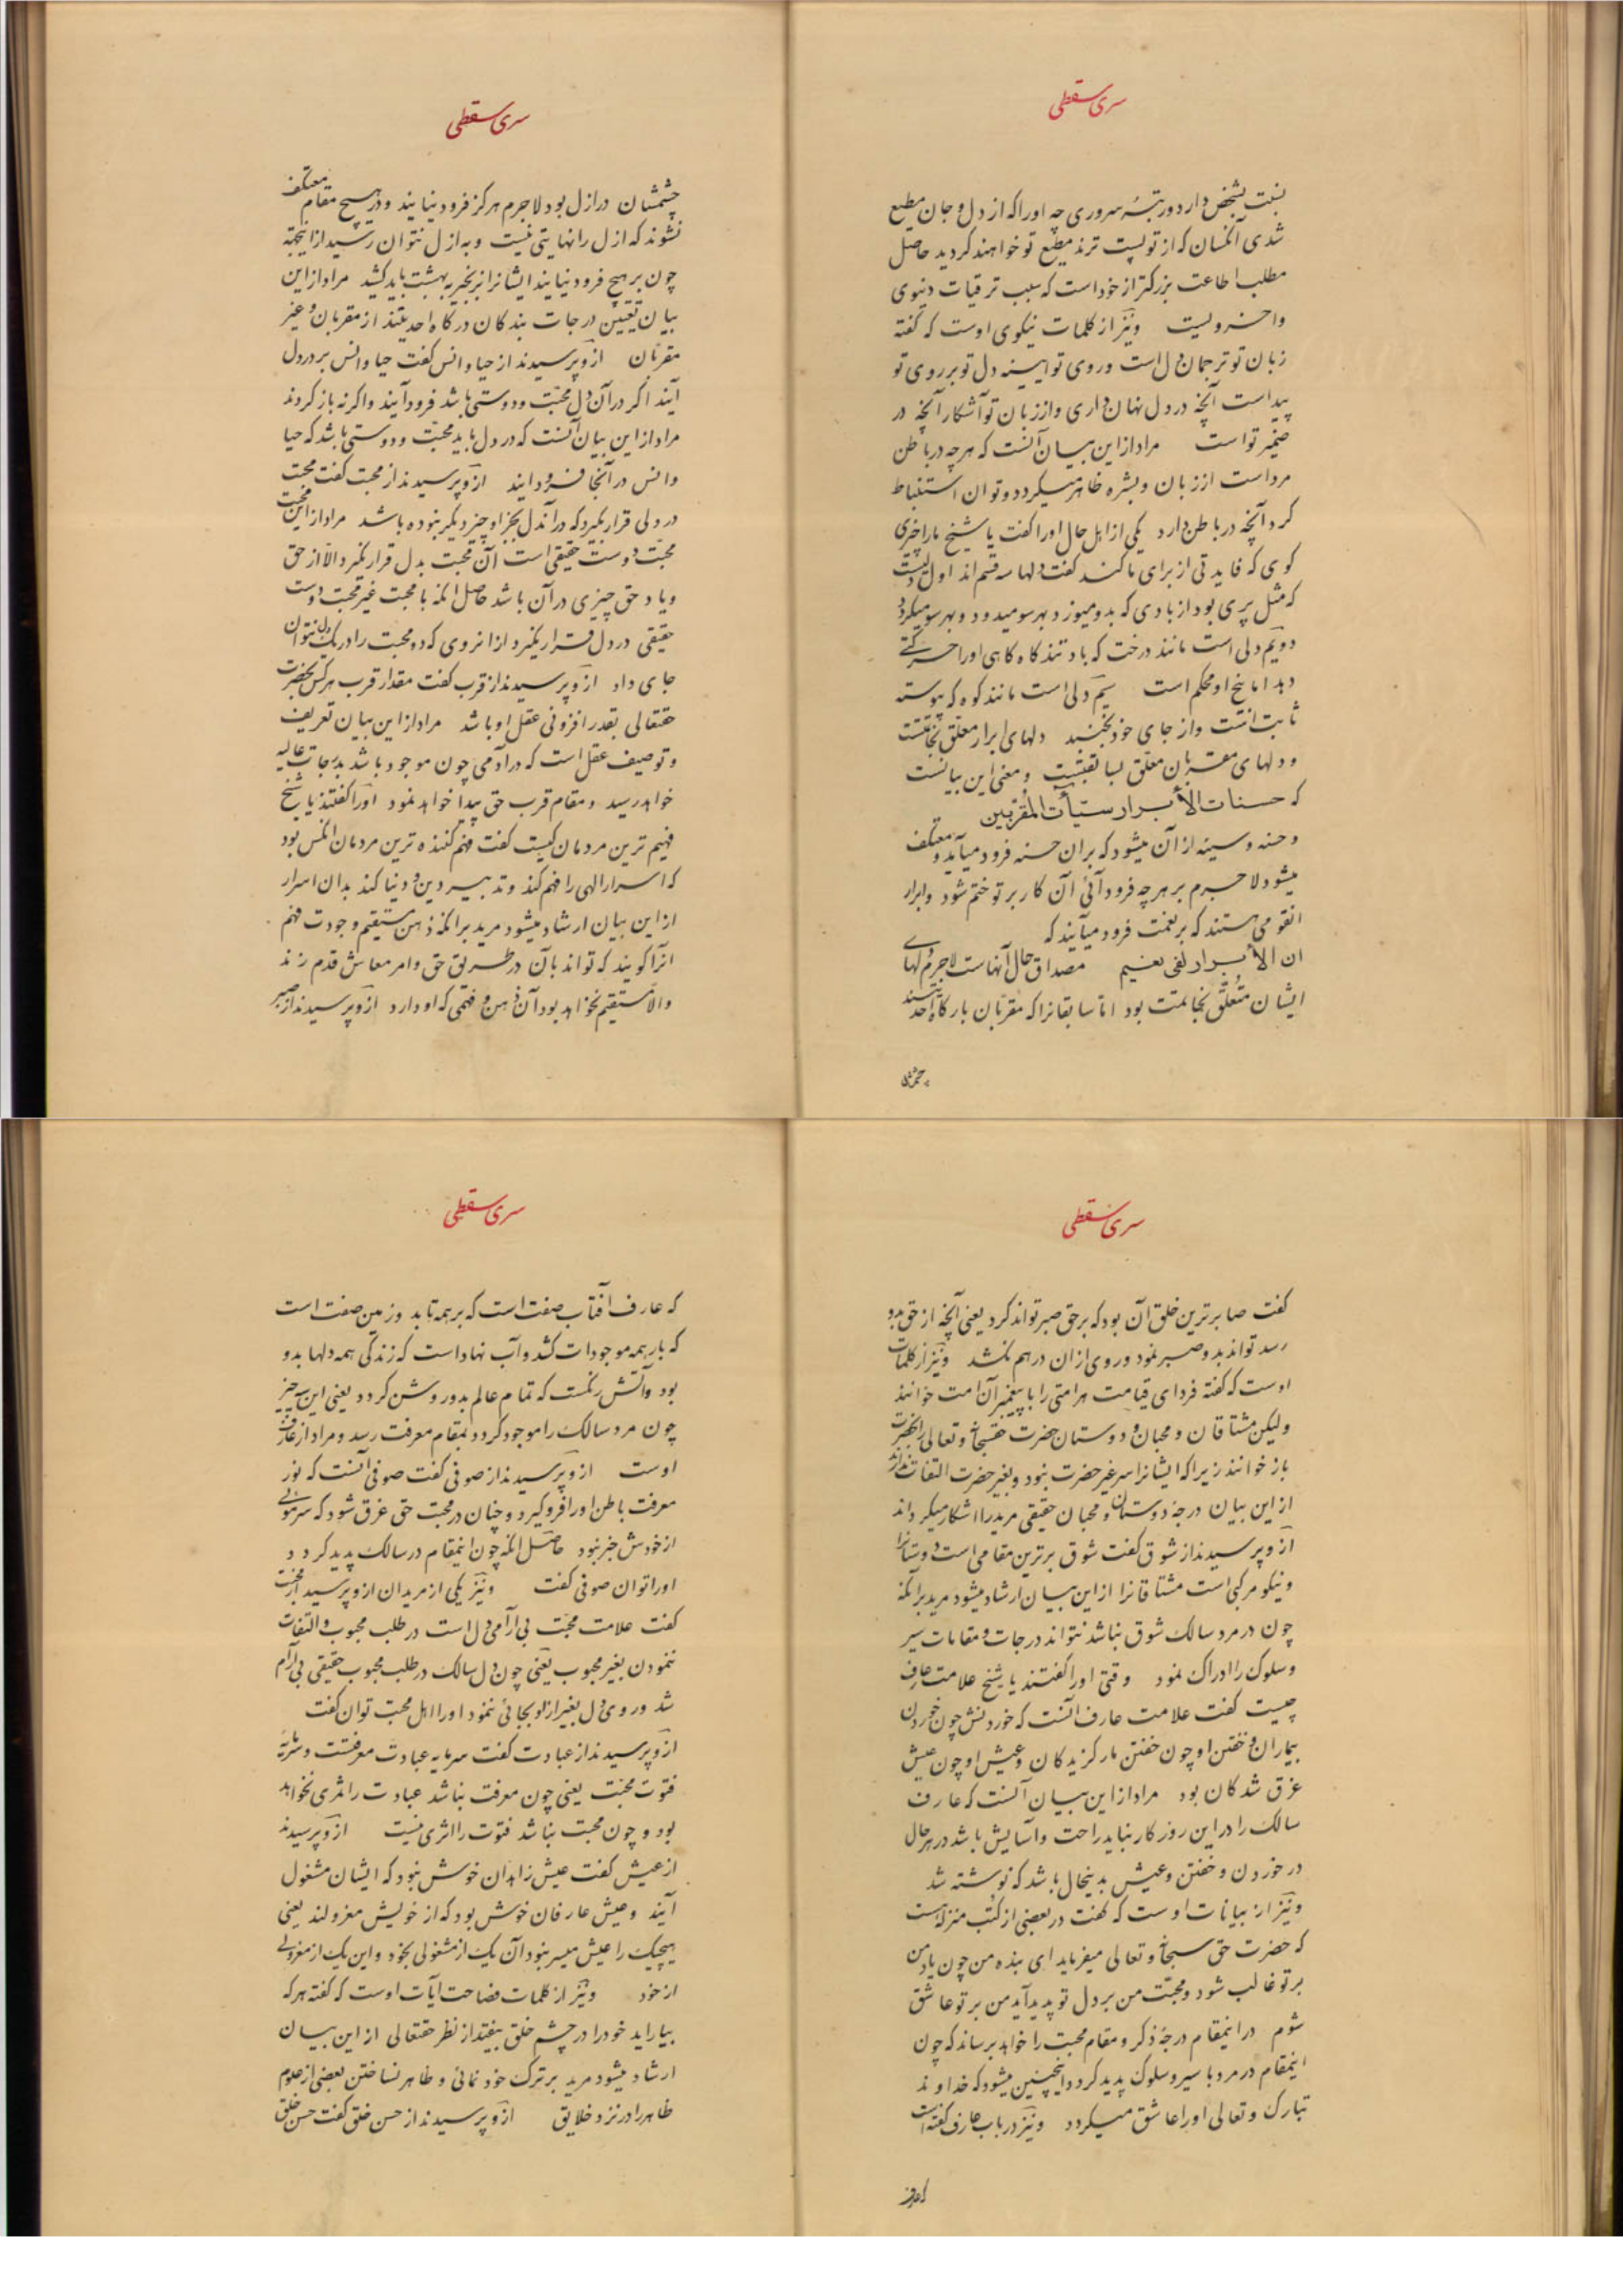 سری سقطی
نسبت بشخص دارد و رتبهٔ سروری چه او را که از دل و جان مطیع
شدی آنکسان که از تو پست ترند مطیع تو خواهند کردید حاصل
مطلب اطاعت بزرکتر از خود است که سبب ترقیات دنیوی
و اخرویست ونیز از کلمات نیکوی اوست که کفته
زبان تو ترجمان دل است وروی تو ایینه دل تو بر روی تو
پیداست آنچه در دل نهان داری و از زبان تو آشکار آنچه در
ضمیر تو است مراد از این بیان آنست که هرچه در باطن
مرد است از زبان و بشره ظاهر میکردد و توان استنباط
کرد آنچه در باطن دارد یکی از اهل حال او را کفت یا شیخ ما را چیزی
کوی که فایدتی از برای ما کند کفت دلها سه قسم اند اول دلیست
که مثل پری بود از بادی که بدو میوزد بهر سو میدود و بهر سو میکردد
دویم دلی است مانند درخت که باد تند کاه کاهی او را حرکتی
دهد اما بیخ او محکم است سیم دلی است مانند کوه که پیوسته
ثابت است و از جای خود نجنبد دلهای ابرار معلق بخاتمتست
و دلهای مقربان معلق بسابقتیست ومعنی این بیانست
که حسنات الأبرار سیئآت المقربین
و حسنه و سیئه از آن میشود که بران حسنه فرود میآید و معتکف
میشود لاجرم بر هرچه فرود آئی آن کار بر تو ختم شود وابرار
انقومی هستند که بر نعمت فرود میآیند که
ان الأبرار لفی نعیم مصداق حال آنهاست لاجرم دلهای
ایشان متعلق بخاتمت بود اما سابقانرا که مقربان بارکاه احدیتند
چشمشان
سری سقطی
چشمشان در ازل بود لاجرم هرکز فرود نیایند و در هیچ مقام معتکف
نشوند که ازل را نهایتی نیست و به ازل نتوان رسید از اینجهة
چون بر هیچ فرود نیایند ایشانرا بزنجیر به بهشت باید کشید مراد از این
بیان تعیین درجات بندکان درکاه احدیتند از مقربان و غیر
مقربان از و پرسیدند از حیا و انس کفت حیا و انس بر در دل
آیند اکر در آن دل محبّت و دوستی باشد فرود آیند و اکرنه باز کردند
مراد از این بیان آنست که در دل باید محبّت و دوستی باشد که حیا
و انس در آنجا فرود ایند از و پرسیدند از محبت کفت محبت
در دلی قرار نکیرد که در آندل بجز او چیز دیکر نبوده باشد مراد از این محبت
محبت دوست حقیقی است آن محبت بدل قرار نکیرد الّا از حق
و یاد حق چیزی در آن باشد حاصل انکه با محبت غیر محبت دوست
حقیقی در دل قرار نکیرد از انروی که دو محبت را در یک دل نتوان
جای داد از و پرسیدند از قرب کفت مقدار قرب هر کس بحضرت
حقتعالی بقدر افزونی عقل او باشد مراد از این بیان تعریف
و توصیف عقل است که در آدمی چون موجود باشد بدرجات عالیه
خواهد رسید و مقام قرب حق پیدا خواهد نمود او را کفتند یا شیخ
فهیم ترین مردمان کیست کفت فهم کننده ترین مردمان انکس بود
که اسرار الهی را فهم کند و تدبیر دین و دنیا کند بدان اسرار
از این بیان ارشاد میشود مرید بر انکه ذهن مستقیم و جودت فهم
انرا کویند که تواند بآن در طریق حق و امر معاش قدم زند
والّا مستقیم نخواهد بود آن ذهن و فهمی که او دارد از و پرسیدند از صبر
سری سقطی
کفت صابرترین خلق آن بود که بر حق صبر تواند کرد یعنی آنچه از حق بدو
رسد تواند بدو صبر نمود و روی از ان در هم نکشد ونیز از کلمات
اوست که کفته فردای قیامت هر امتی را با پیغمبر آن امت خوانند
ولیکن مشتاقان و محبان و دوستان حضرت حقسبحانه و تعالی را بحضرت
باز خوانند زیرا که ایشانرا سر غیر حضرت نبود و بغیر حضرت التفات ندارند
از این بیان درجهٔ دوستان و محبان حقیقی مرید را اشکار میکرداند
از و پرسیدند از شوق کفت شوق برترین مقامی است دوستانرا
و نیکو مرکبی است مشتاقانرا از این بیان ارشاد میشود مرید بر آنکه
چون در مرد سالک شوق نباشد نتواند درجات و مقامات سیر
و سلوک را ادراک نمود وقتی او را کفتند یا شیخ علامت عارف
چیست کفت علامت عارف آنست که خوردنش چون خوردن
بیماران و خفتن او چون خفتن مارکزیدکان و عیش او چون عیش
غرق شدکان بود مراد از این بیان آنست که عارف
سالک را در این روزکار نباید راحت و آسایش باشد در هر حال
در خوردن و خفتن و عیش بدینحال باشد که نوشته شد
ونیز از بیانات اوست که کفت در بعضی از کتب منزله است
که حضرت حق سبحانه و تعالی میفرماید ای بنده من چون یاد من
بر تو غالب شود و محبّت من بر دل تو پدید آید من بر تو عاشق
شوم در اینمقام درجهٔ ذکر و مقام محبت را خواهد برساند که چون
اینمقام در مرد با سیر و سلوک پدید کردد اینچنین میشود که خداوند
تبارک و تعالی او را عاشق میکردد ونیز در باب عارف کفته است
که عارف
سری سقطی
که عارف افتاب صفت است که بر همه تابد و زمین صفت است
که بار همه موجودات کشد و آب نهاد است که زندکی همه دلها بدو
بود و آتش رنکست که تمام عالم بدو روشن کردد یعنی این سه چیز
چون مرد سالک را موجود کردد بمقام معرفت رسد و مراد از عارف
اوست از و پرسیدند از صوفی کفت صوفی آنست که نور
معرفت باطن او را فرو کیرد و چنان در محبت حق غرق شود که سر موئی
از خودش خبر نبود حاصل انکه چون اینمقام در سالک پدید کردد
او را توان صوفی کفت ونیز یکی از مریدان از و پرسید از محبت
کفت علامت محبّت بی آرامی دل است در طلب محبوب و التفات
ننمودن بغیر محبوب یعنی چون دل سالک در طلب محبوب حقیقی بی آرام
شد و روی دل بغیر از او بجائی ننمود او را اهل محبّت توان کفت
از و پرسیدند از عبادت کفت سرمایه عبادت معرفتست و سرمایهٔ
فتوت محبّت یعنی چون معرفت نباشد عبادت را ثمری نخواهد
بود و چون محبت نباشد فتوت را اثری نیست از و پرسیدند
از عیش کفت عیش زاهدان خوش نبود که ایشان مشغول
آیند و عیش عارفان خوش بود که از خویش معزولند یعنی
هیچیک را عیش میسر نبود آن یک از مشغولی بخود و این یک از معزولی
از خود ونیز از کلمات فصاحت آیات اوست که کفته هرکه
بیاراید خود را در چشم خلق بیفتد از نظر حقتعالی از این بیان
ارشاد میشود مرید بر ترک خود نمائی و ظاهر نساختن بعضی از علوم
ظاهر را در نزد خلایق از و پرسیدند از حسن خلق کفت حسن خلق